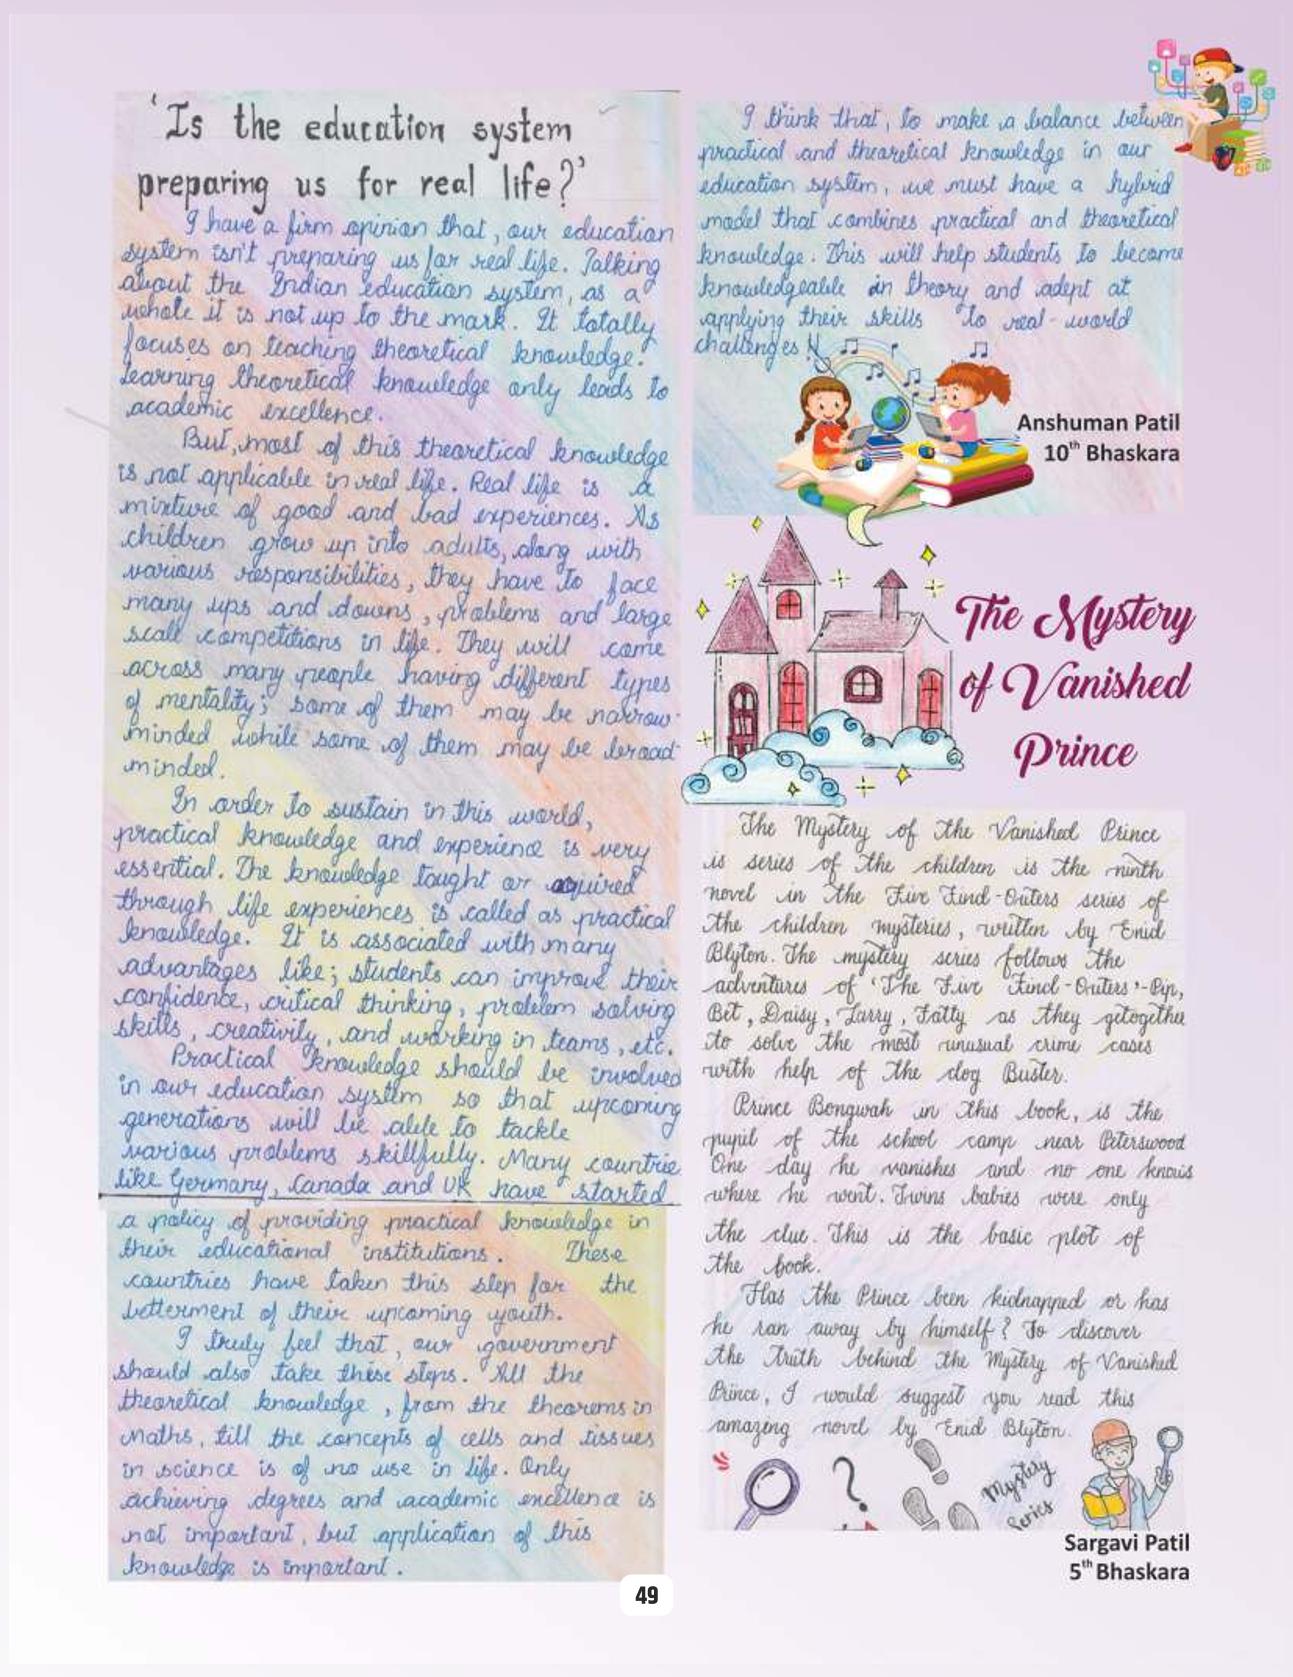 'Is the education system
preparing us for real life?'
I have a firm opinion that, our education
system isn't preparing us for real life. Talking
about the Indian education system, as a
whole it is not up to the mark. It totally
focuses on teaching theoretical knowledge.
Learning theoretical knowledge only leads to
academic excellence.
But, most of this theoretical knowledge
is not applicable in real life. Real life is a
mixture of good and bad experiences. As
children grow up into adults, along with
various responsibilities, they have to face
many ups and downs, problems and large
scale competitions in life. They will come
across many people having different types
of mentality; some of them may be narrow-
minded while some of them may be broad-
minded.
In order to sustain in this world,
practical knowledge and experience is very
essential. The knowledge taught or acquired
through life experiences is called as practical
knowledge. It is associated with many
advantages like; students can improve their
confidence, critical thinking, problem solving
skills, creativity, and working in teams, etc.
Practical knowledge should be involved
in our education system so that upcoming
generations will be able to tackle
various problems skillfully. Many countrie
like Germany, Canada and UK have started
a policy of providing practical knowledge in
their educational institutions. These
countries have taken this step for the
betterment of their upcoming youth.
I truly feel that, our government
should also take these steps. All the
theoretical knowledge, from the theorems in
Maths, till the concepts of cells and tissues
in science is of no use in life. Only
achieving degrees and academic excellence is
not important, but application of this
knowledge is important.
I think that, to make a balance between
practical and theoretical knowledge in our
education system, we must have a hybrid
model that combines practical and theoretical
knowledge. This will help students to become
knowledgeable in theory and adept at
applying their skills to real-world
challenges!!
Anshuman Patil
10th Bhaskara
The Mystery
of Vanished
Prince
The Mystery of the Vanished Prince
is series of the children is the ninth
novel in the Five Find-Outers series of
the children mysteries, written by Enid
Blyton. The mystery series follows the
adventures of 'The Five Find-Outers'-Pip,
Bet, Daisy, Larry, Fatty as they getogether
to solve the most unusual crime cases
with help of the dog Buster.
Prince Bongwah in this book, is the
pupil of the school camp near Peterswood
One day he vanishes and no one knows
where he went. Twins babies were only
the clue. This is the basic plot of
the book.
Has the Prince been kidnapped or has
he ran away by himself? To discover
the truth behind the Mystery of Vanished
Prince, I would suggest you read this
amazing novel by Enid Blyton.
Mystery
Series
Sargavi Patil
5th Bhaskara
49